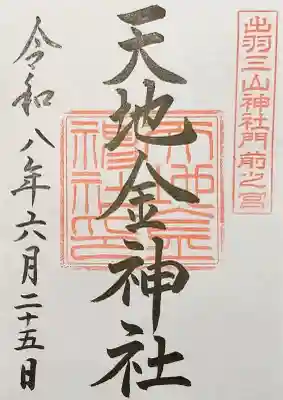 出羽三山神社門前之宮
天地金神社
令和八年六月二十五日